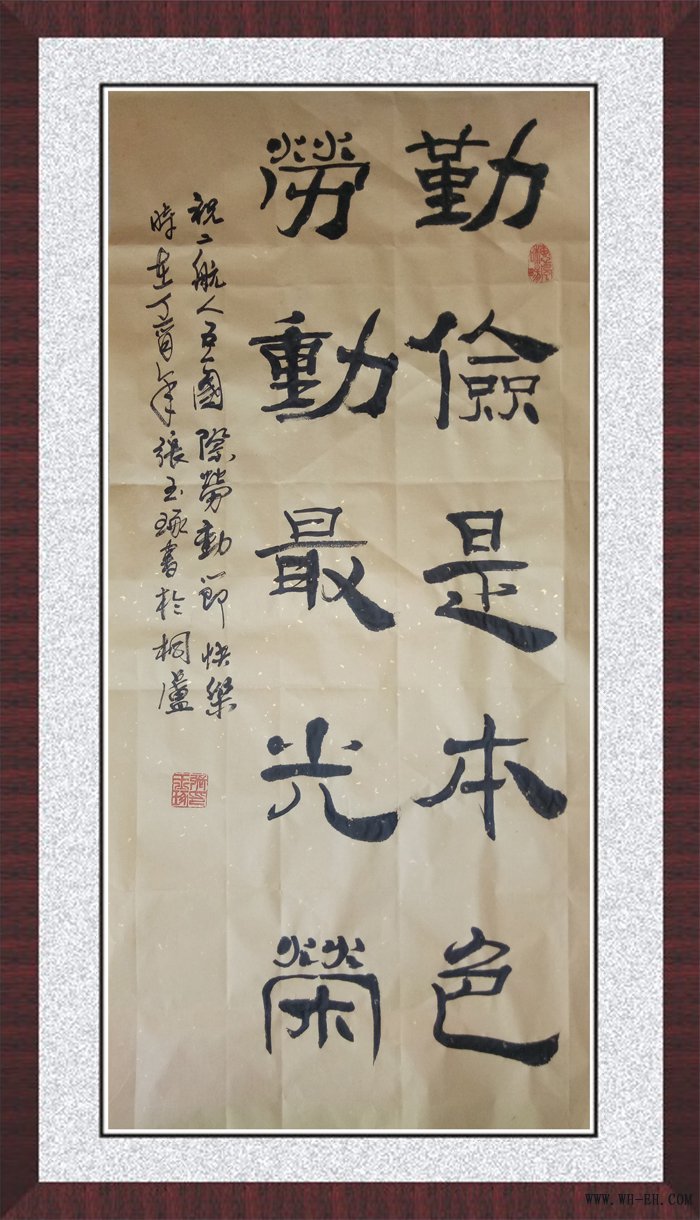 勤儉是本色
勞動最光榮
祝二航人五一國際勞動節快樂
時在丁酉年張玉琢書於桐廬
WWW.WH-EH.COM